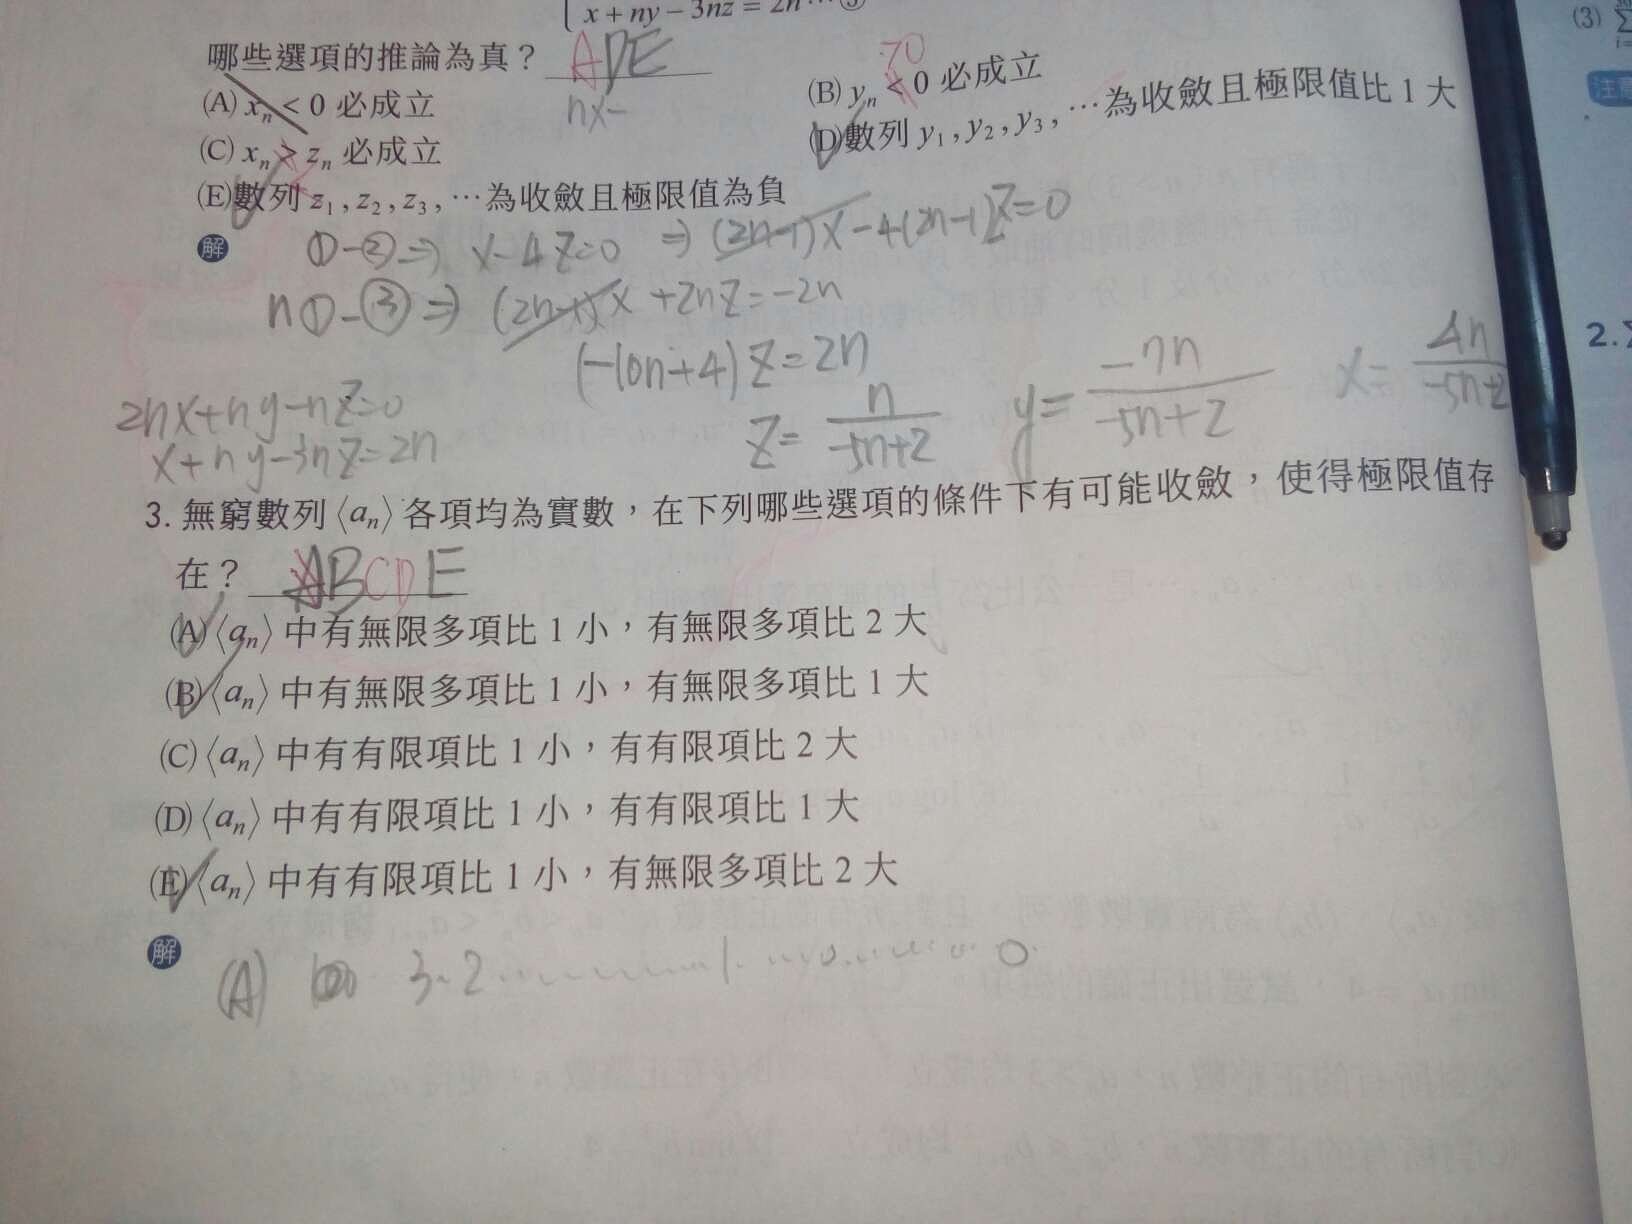 x + ny − 3nz = 2n … ③
哪些選項的推論為真？ ADE
(A) xn < 0 必成立
nx−
>0
(B) yn < 0 必成立
(C) xn > zn 必成立
(D) 數列 y1 , y2 , y3 , … 為收斂且極限值比 1 大
(E) 數列 z1 , z2 , z3 , … 為收斂且極限值為負
解 ①−②⇒ x−4z=0 ⇒ (2n−1)x−4(2n−1)z=0
n①−③⇒ (2n−1)x+2nz=−2n
(−10n+4)z=2n
2nx+ny−nz=0
x+ny−3nz=2n
z= n/(−5n+2) y= −7n/(−5n+2) x= 4n/(−5n+2)
3. 無窮數列⟨an⟩各項均為實數，在下列哪些選項的條件下有可能收斂，使得極限值存
在？ ABCDE
(A)⟨an⟩中有無限多項比 1 小，有無限多項比 2 大
(B)⟨an⟩中有無限多項比 1 小，有無限多項比 1 大
(C)⟨an⟩中有有限項比 1 小，有有限項比 2 大
(D)⟨an⟩中有有限項比 1 小，有有限項比 1 大
(E)⟨an⟩中有有限項比 1 小，有無限多項比 2 大
解
(A) 3.2
(3)
注意
2.